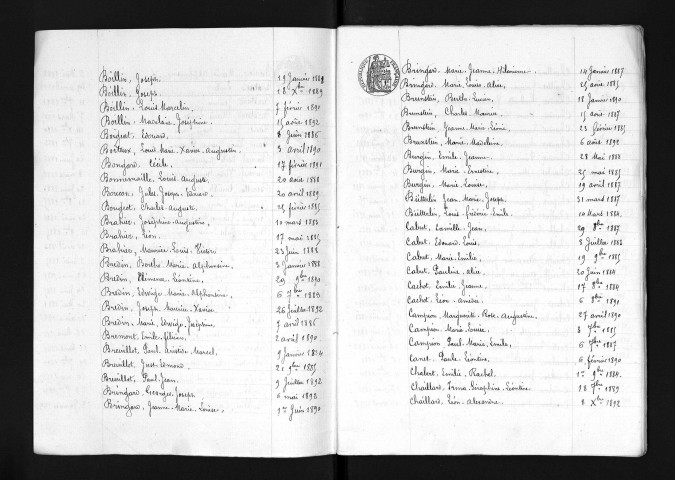 Boillin, Joseph 19 Janvier 1889
Boillin, Joseph 18 Xbre 1889
Boillin, Louis Marcelin, 7 février 1891
Boillin, Joséphine, 15 août 1892
Boigeot, Edouard, 8 Juin 1886
Louis Marie Xavier Augustin, 3 avril 1890
Bongard, Cécile, 17 février 1891
Louis Auguste, 20 août 1888
Jules Joseph 20 avril 1889
Bougeot, Charles Auguste, 25 février 1885
Brahier, Joséphine Augustin, 10 mars 1883
Brahier, Léon, 17 mai 1885
Brahier, Maurice Louis 23 Juin 1888
Bredin, Berthe Marie Alphonsine, 3 Janvier 1888
Bredin, Clémence Léontine, 29 9bre 1890
Bredin, Edwige Marie Alphonsine, 6 7bre 1883
Bredin, Joseph Maurice Xavier, 26 Juillet 1892
Bredin, Marie Edwige Joséphine, 7 avril 1886
Bremont, Emile 2 avril 1890
Breuillot, Paul Aristide Marcel, 9 Janvier 1884
Breuillot, Just 21 1885
Breuillot, Paul Jean, 9 Juillet 1892
Bringard, Georges Joseph 6 mai 1892
Bringard, Jeanne Marie Louise, 1er Juin 1890
Bringard, Marie Jeanne 14 Janvier 1887
Bringard, Marie Louise Alice, 25 août 1885
Brunstein, Berthe 18 Janvier 1890
Brunstein, Charles Maurice, 15 août 1887
Brunstein, Jeanne Marie Léonie, 23 février 1885
Brunstein, Marie Madeleine 6 août 1892
Burgin, Emile Jeanne, 28 mai 1888
Burgin, Marie Ernestine, 25 mai 1885
Burgin, Marie Louise 19 avril 1887
Bütterlin, Jean Marie Joseph, 31 mars 1887
Bütterlin, Louis Emile, 10 Mars 1884
Cabut, Camille Jean, 29 8bre 1887
Cabut, Edouard Louis, 8 Juillet 1888
Cabut, Marie Emilie, 19 9bre 1885
Cabut, Pauline Alice, 20 Juin 1884
Cachot, Emilie Jeanne, 17 8bre 1884
Cachot, Léon Amédée, 6 1890
Campion, Marguerite Rose Augustine, 27 avril 1890
Campion, Marie Louise, 3 7bre 1885
Campion, Paul Marie Emile, 6 1887
Canet, Paule Léontine, 6 février 1890
Chabut, Emilie Rachel 1er 9bre 1884
Chaillard, Irma Séraphine Léontine 18 1889
Chaillard, Léon Alexandre 8 Xbre 1892